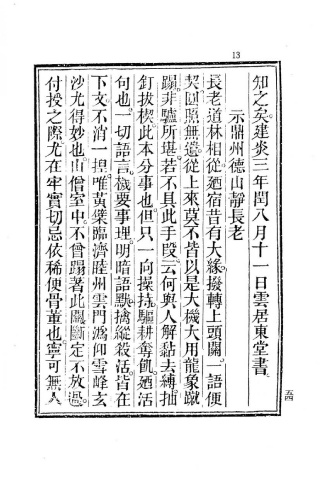 13
知之矣。建炎三年閏八月十一日雲居東堂書。
示鼎州德山靜長老
長老道林相從廼宿昔有大緣。撥轉上頭關。一語便
契。圓照無遺。從上來莫不皆以是大機大用。龍象蹴
蹋。非驢所堪。若不具此手段。云何與人解黏去縛。抽
釘拔楔。此本分事也。但只一向操持。驅耕奪飢。廼活
句也。一切語言。機要事理。明暗語默。擒縱殺活。皆在
下文。不消一捏。唯黃檗臨濟睦州雲門溈仰雪峰玄
沙尤得妙也。由僧室中不曾蹋著此關。斷定不放過。
付授之際尤在牢實。切忌依稀便骨董也。寧可無人
五四